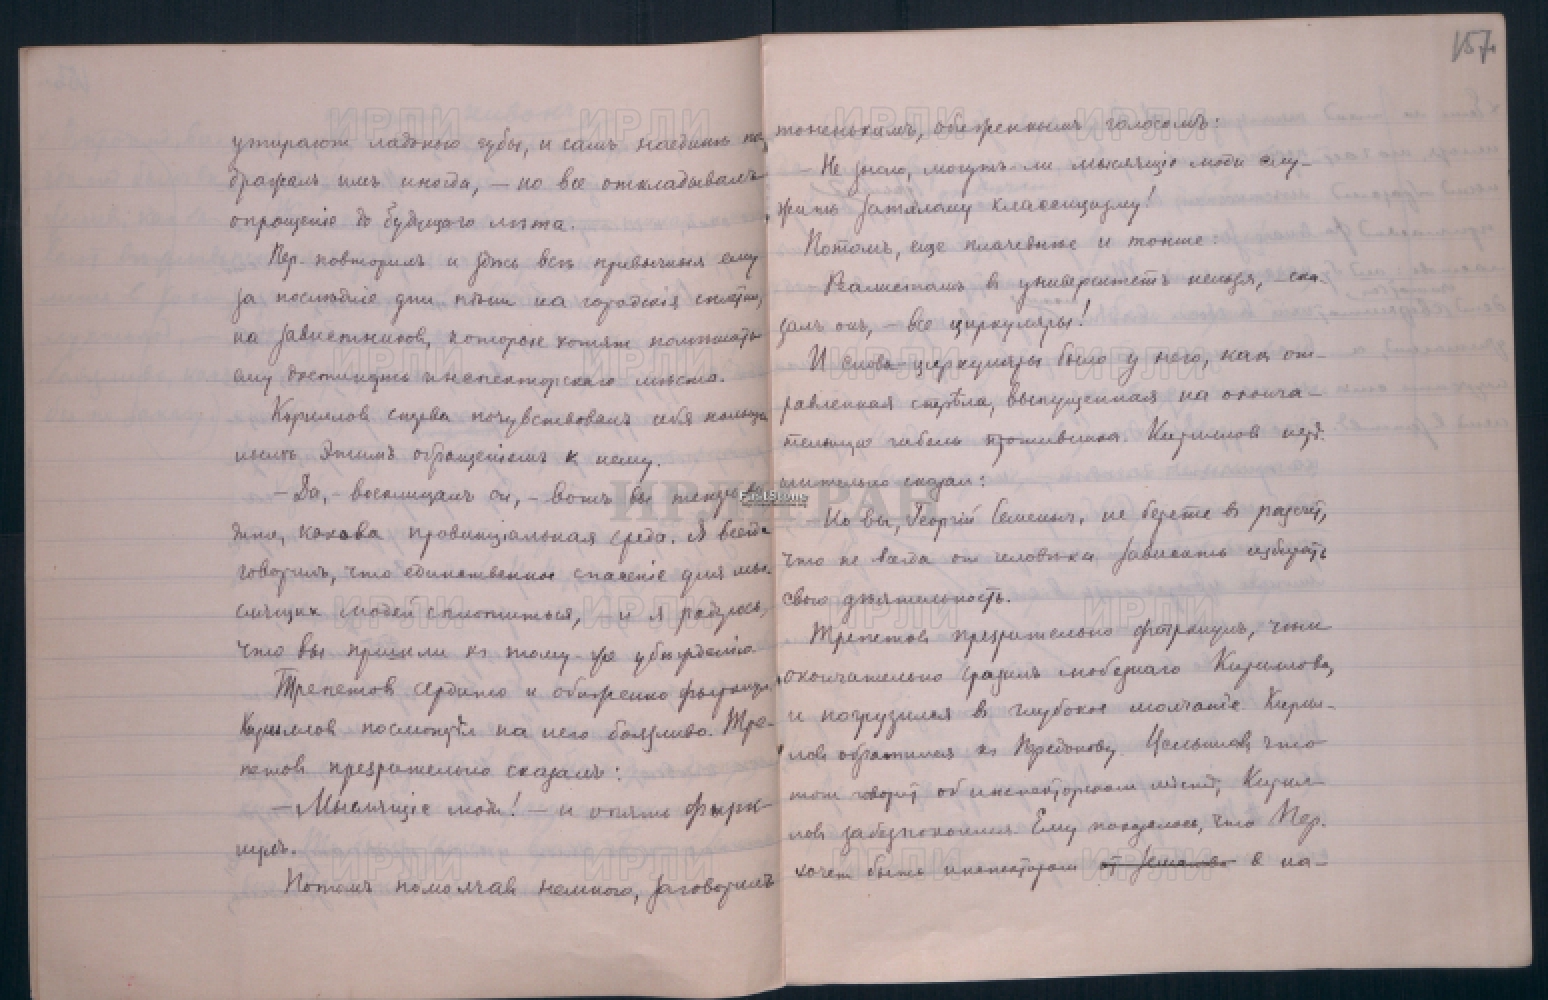 157
утирают ладонью губы, и самъ наединѣ по-
дражалъ имъ иногда, – но все откладывалъ
опрощеніе до будущаго лѣта.
Пер. повторилъ и здѣсь всѣ привычныя ему
за послѣдніе дни пѣни на городскія сплетни,
на завистников, которые хотят помѣшать
ему достигнуть инспекторскаго мѣста.
Кириллов сперва почувствовалъ себя польщен-
нымъ этимъ обращеніемъ к нему.
– Да, – восклицалъ он, – вотъ вы теперь ви-
дите, какова провинціальная среда. Я всегда
говорилъ, что единственное спасеніе для мы-
слящих людей сплотиться, и я радуюсь,
что вы пришли къ тому же убѣжденію
Трепетов сердито и обиженно фыркнул.
Кириллов посмотрѣл на него боязливо. Тре-
петов презрительно сказалъ:
– Мыслящіе люди! – и опять фырк-
нулъ.
Потомъ помолчав немного, заговорилъ
тоненькимъ, обиженнымъ голосомъ:
– Не знаю, могутъ ли мыслящіе люди слу-
жить затхлому классицизму!
Потомъ, еще плачевнѣе и тоньше:
Реалистамъ в университетъ нельзя, – ска-
залъ онъ, – все циркуляры!
И слово циркуляры было у него, как от-
равленная стрѣла, выпущенная на оконча-
тельную гибель Кириллов нерѣ-
шительно сказал:
– Но вы, Георгій Семеныч, не берете въ расчет,
что не всегда от человѣка зависитъ избирать
свою дѣятельность.
Трепетов презрительно фыркнулъ, чѣмъ
окончательно сразилъ победнаго Кириллова,
и погрузился въ глубокое молчаніе Кирил-
лов обратился къ Передонову. Услышав, что
тот говорит об инспекторском мѣстѣ, Кирил-
лов забезпокоился Ему показалось, что Пер.
хочет быть инспектором от земства в на-
ИРЛИ ИРЛИ ИРЛИ ИРЛИ
ИРЛИ ИРЛИ ИРЛИ ИРЛИ
ИРЛИ РАН
ИРЛИ ИРЛИ ИРЛИ ИРЛИ
ИРЛИ ИРЛИ ИРЛИ ИРЛИ